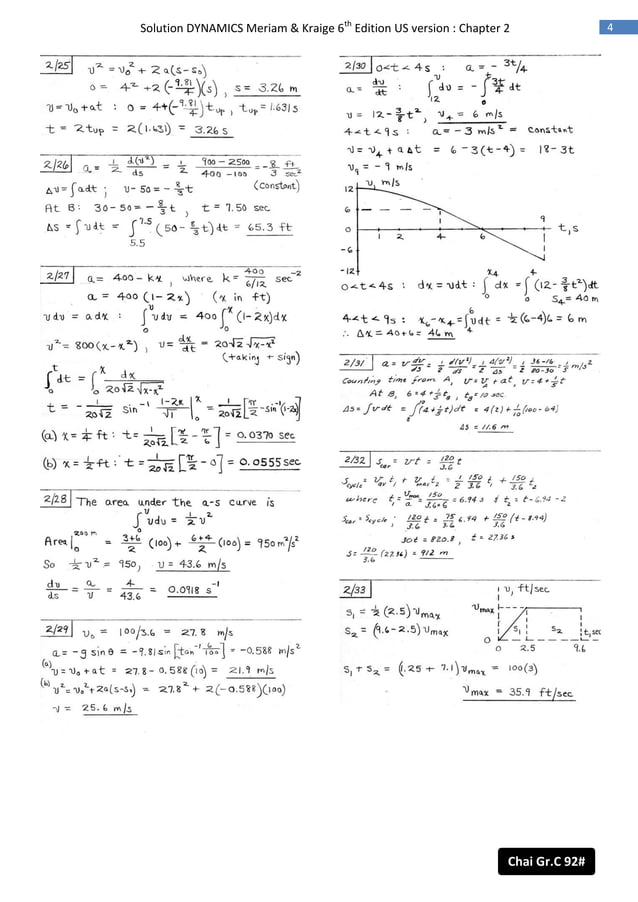 Solution DYNAMICS Meriam & Kraige 6th Edition US version : Chapter 2
4
2/25 v² = v₀² + 2a(s-s₀)
0 = 4² + 2(-9.81/4)(s) , s = 3.26 m
v = v₀ + at : 0 = 4+(-9.81/4)t_up , t_up = 1.631 s
t = 2t_up = 2(1.631) = 3.26 s
2/26 a = 1/2 d(v²)/ds = 1/2 (900 - 2500)/(400 - 100) = -8/3 ft/sec²
(constant)
Δv = ∫adt ; v - 50 = -8/3 t
At B: 30 - 50 = -8/3 t , t = 7.50 sec
Δs = ∫vdt = ∫^7.5 (50 - 8/3 t)dt = 65.3 ft
5.5
2/27 a = 400 - kx , where k = 400/(6/12) sec⁻²
a = 400 (1 - 2x) (x in ft)
vdv = adx : ∫₀^v vdv = 400∫₀^x (1-2x)dx
v² = 800(x-x²) , v = dx/dt = 20√2 √x-x²
(taking + sign)
∫₀^t dt = ∫₀^x dx/(20√2 √x-x²)
t = - 1/(20√2) sin⁻¹ (1-2x)/√1 |₀^x = 1/(20√2) [π/2 - sin⁻¹(1-2x)]
(a) x = 1/4 ft : t = 1/(20√2) [π/2 - π/6] = 0.0370 sec
(b) x = 1/2 ft : t = 1/(20√2) [π/2 - 0] = 0.0555 sec
2/28 The area under the a-s curve is
∫₀^v vdv = 1/2 v²
Area|₀^200 m = (3+6)/2 (100) + (6+4)/2 (100) = 950 m²/s²
So 1/2 v² = 950, v = 43.6 m/s
dv/ds = a/v = 4/43.6 = 0.0918 s⁻¹
2/29 v₀ = 100/3.6 = 27.8 m/s
a = -g sin θ = -9.81 sin [tan⁻¹ 6/100] = -0.588 m/s²
(a) v = v₀ + at = 27.8 - 0.588 (10) = 21.9 m/s
(b) v² = v₀² + 2a(s-s₀) = 27.8² + 2(-0.588)(100)
v = 25.6 m/s
2/30 0<t<4s : a = - 3t/4
a = dv/dt : ∫₁₂^v dv = - ∫₀^t 3t/4 dt
v = 12 - 3/8 t² , v₄ = 6 m/s
4<t<9s : a = -3 m/s² = constant
v = v₄ + aΔt = 6 - 3(t-4) = 18-3t
v₉ = -9 m/s
v, m/s
12
6
0
-6
-12
1 2 4 6 9
t, s
0<t<4s : dx = vdt : ∫₀^x₄ dx = ∫₀^4 (12 - 3/8 t²)dt
s₄ = 40 m
4<t<9s : x₆-x₄ = ∫₄^6 vdt = 1/2 (6-4)6 = 6 m
∴ Δx = 40+6 = 46 m
2/31 a = v dv/ds = 1/2 d(v²)/ds = 1/2 Δ(v²)/Δs = 1/2 (36-16)/(80-30) = 1/5 m/s²
Counting time from A, v = v₀ + at, v = 4 + 1/5 t
At B, 6 = 4 + 1/5 t_B , t_B = 10 sec.
Δs = ∫vdt = ∫₈^10 (4 + 1/5 t)dt = 4(2) + 1/10 (100 - 64)
Δs = 11.6 m
2/32 s_car = vt = 120/3.6 t
s_cycle = v_av t₁ + v_max t₂ = 1/2 150/3.6 t₁ + 150/3.6 t₂
where t₁ = v_max/a = 150/(3.6×6) = 6.94 s & t₂ = t-6.94-2
s_car = s_cycle ; 120/3.6 t = 75/3.6 6.94 + 150/3.6 (t-8.94)
30t = 820.8 , t = 27.36 s
s = 120/3.6 (27.36) = 912 m
2/33
v, ft/sec
s₁ = 1/2 (2.5) v_max
s₂ = (9.6 - 2.5) v_max
v_max
s₁ s₂
0
t, sec
0 2.5 9.6
s₁ + s₂ = (1.25 + 7.1) v_max = 100(3)
v_max = 35.9 ft/sec
Chai Gr.C 92#